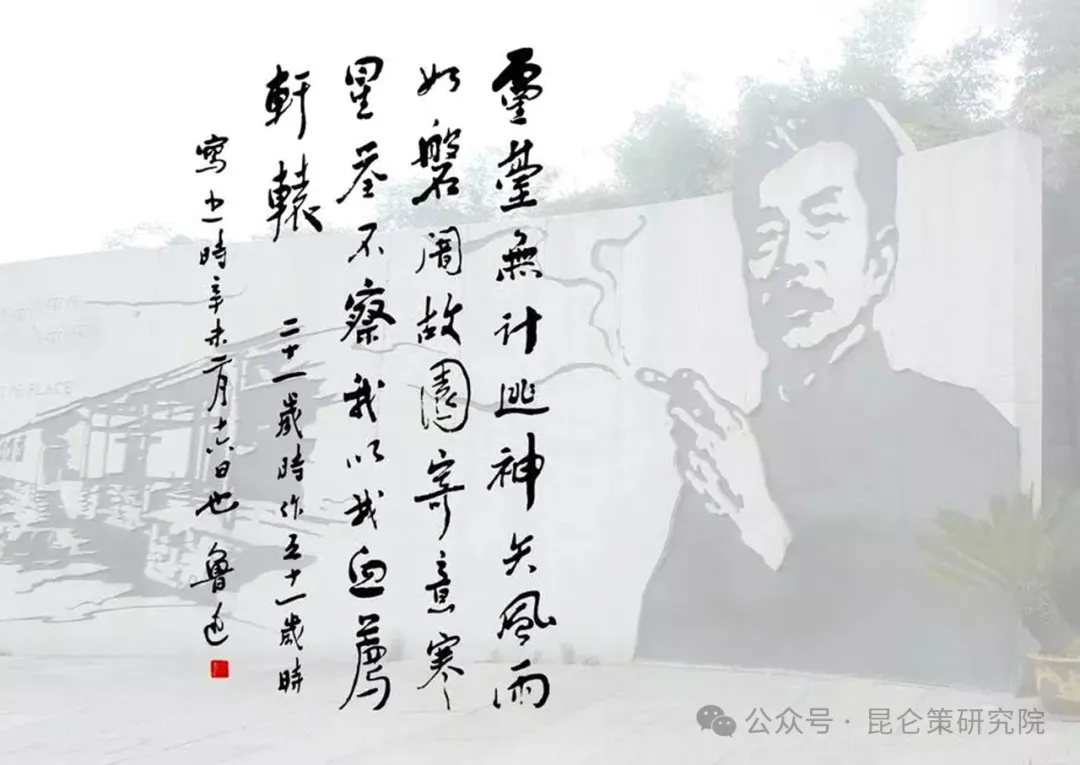 靈臺無計逃神矢風雨
如磐闇故園寄意寒
星荃不察我以我血薦
軒轅 二十一歲時作五十一歲時
寫之時辛未二月十六日也 魯迅
PLACE
公众号 · 昆仑策研究院